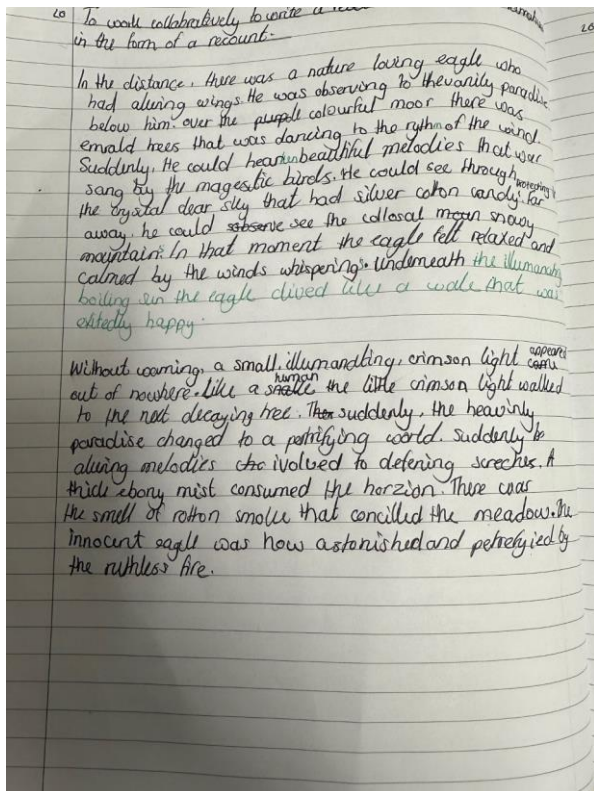 20 To work collaboratively to write a
in the form of a recount.
In the distance, there was a nature loving eagle who
had aluring wings. He was observing to thevanily paradise
below him. over the purple colourful moor there was
emrald trees that was dancing to the rythm of the wind.
Suddenly, He could hear beautiful melodies that wer
sang by the magestic birds. He could see through
the crystal clear sky that had silver coton candy. far
away, he could see the collosal snowy
mountain. In that moment the eagle felt relaxed and
calmed by the winds whispering. Underneath the illumanating
boiling sun the eagle dived like a wale that was
exitedly happy.
Without warning, a small, illumandting, crimson light appeared
out of nowhere. Like a human the little crimson light walked
to the next decaying tree. suddenly, the heavinly
paradise changed to a petrifying world. Suddenly
aluring melodies ivolved to defening screches. A
thick ebony mist consumed the horzion. There was
the smell of rotton smoke that concilled the meadow. The
innocent eagle was now astonished and petrefyied by
the ruthless fire.